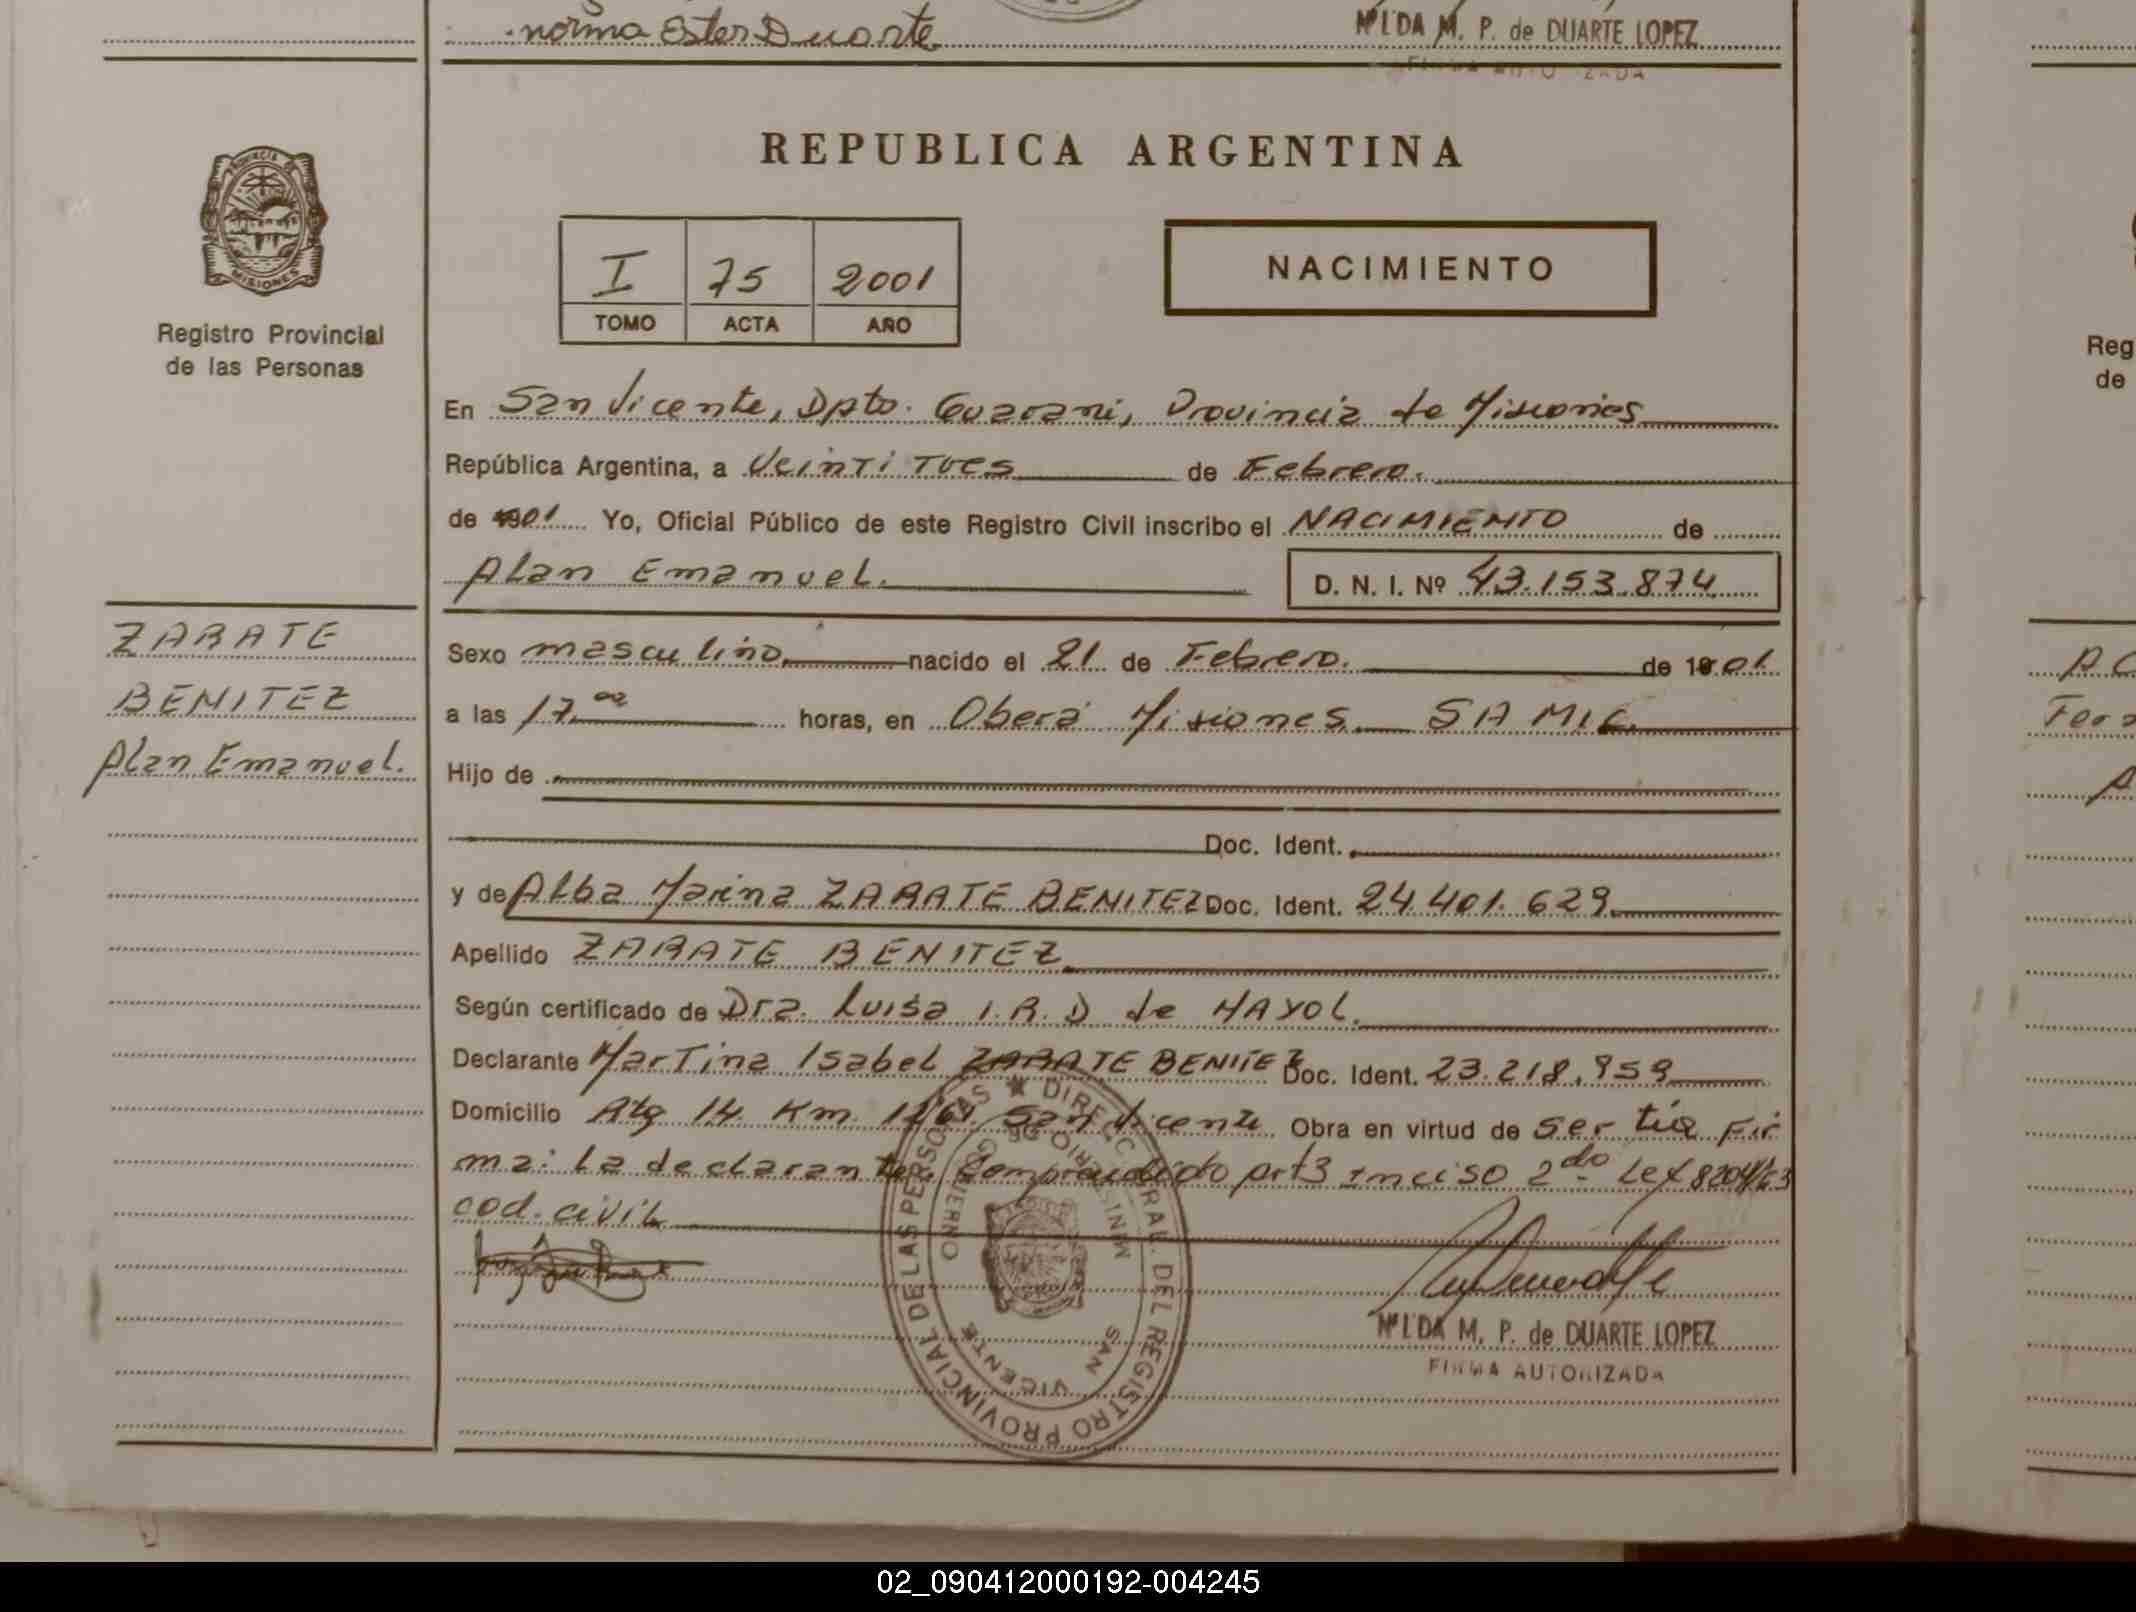 norma Ester Duarte
M. P. de DUARTE LOPEZ
REPUBLICA ARGENTINA
PROVINCIA DE
MISIONES
Registro Provincial
de las Personas
I 75 2001
TOMO ACTA AÑO
NACIMIENTO
En San Vicente, Dpto. Guarani, Provincia de Misiones
República Argentina, a Veinti Tres de Febrero.
de 2001 Yo, Oficial Público de este Registro Civil inscribo el NACIMIENTO de
Alan Emanuel.
D. N. I. Nº 43.153.874
ZARATE
BENITEZ
Alan Emanuel.
Sexo masculino nacido el 21 de Febrero. de 2001.
a las 17 00 horas, en Oberá Misiones SAMIC.
Hijo de
Doc. Ident.
y de Alba Marina ZARATE BENITEZ Doc. Ident. 24.401.629.
Apellido ZARATE BENITEZ
Según certificado de Dra. Luisa I. R. D de MAYOL.
Declarante Martina Isabel ZARATE BENITEZ Doc. Ident. 23.218.959
Domicilio Rta 14 Km. San Vicente Obra en virtud de ser tia Fir
ma: La declarante. Comprendido art 3 Inciso 2do Ley 8204/63
cod. civil
DIRECC. GRAL. DEL REGISTRO PROVINCIAL DE LAS PERSONAS
MINISTERIO DE GOBIERNO
SAN VICENTE
M. P. de DUARTE LOPEZ
FIRMA AUTORIZADA
Reg
de
02_090412000192-004245